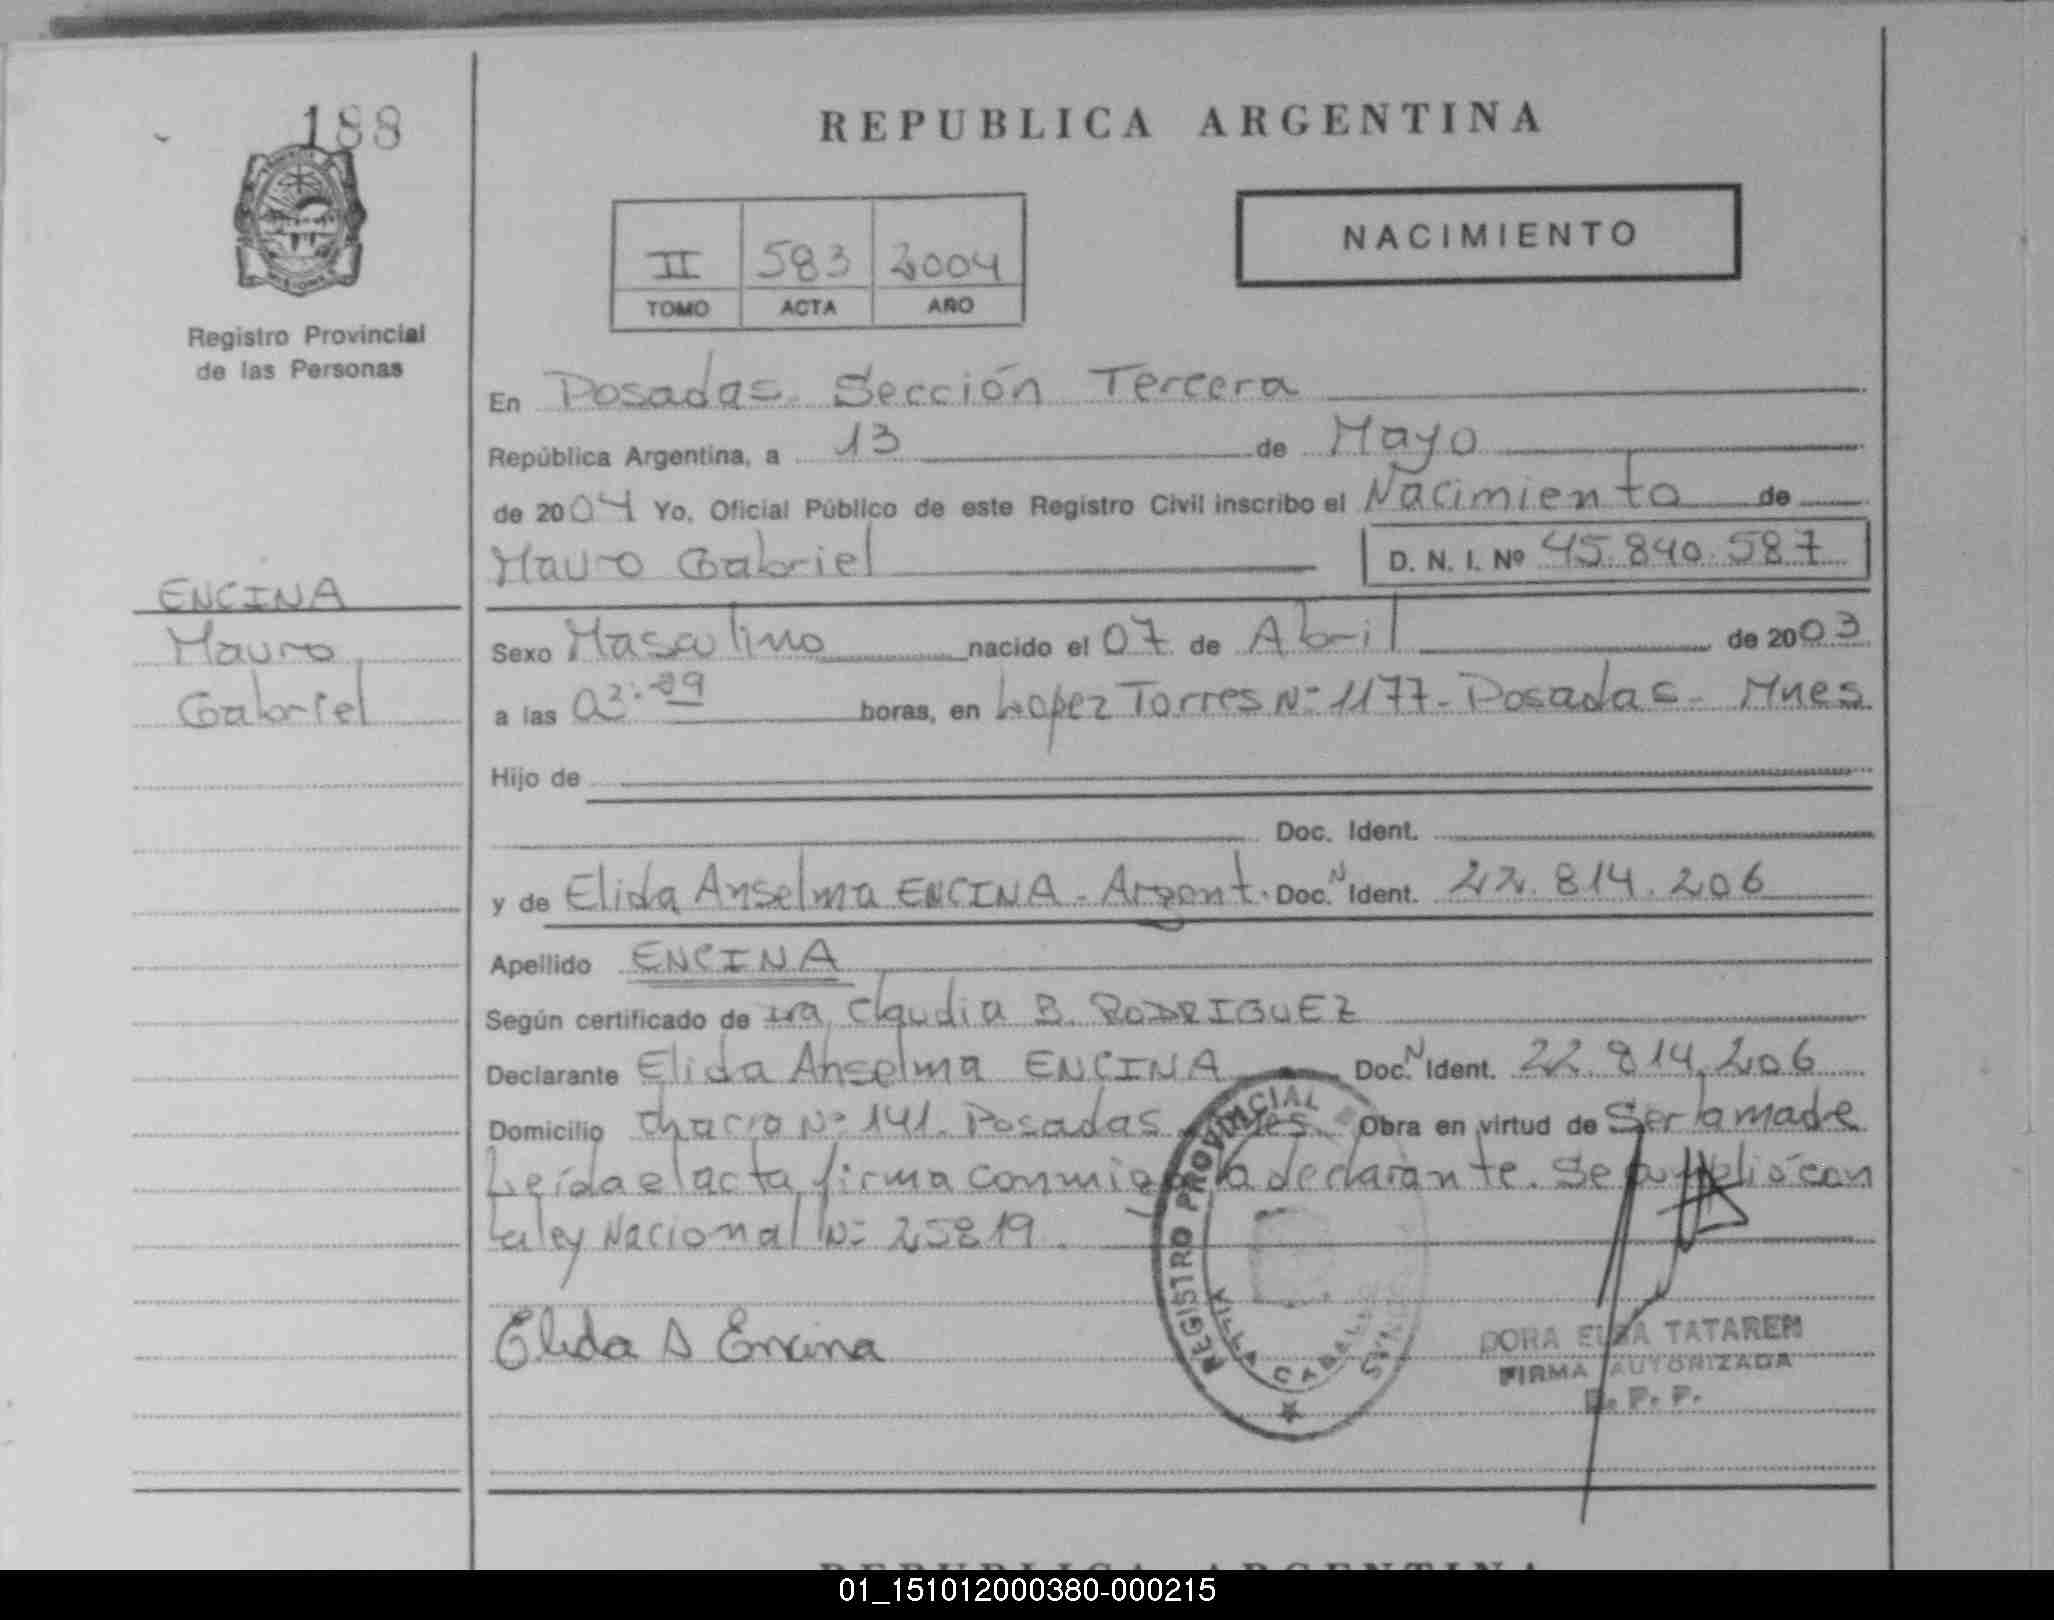 188
REPUBLICA ARGENTINA
NACIMIENTO
II 583 2004
TOMO ACTA AÑO
Registro Provincial
de las Personas
ENCINA
Mauro
Gabriel
En Posadas. Sección Tercera
República Argentina, a 13 de Mayo
de 2004 Yo, Oficial Público de este Registro Civil inscribo el Nacimiento de
Mauro Gabriel D. N. I. Nº 45.840.587
Sexo Masculino nacido el 07 de Abril de 2003
a las horas, en Lopez Torres Nº 1177- Posadas- Mnes
Hijo de
Doc. Ident.
y de Elida Anselma ENCINA - Argent. Doc. N Ident. 22.814.206
Apellido ENCINA
Según certificado de Claudia B. RODRIGUEZ
Declarante Elida Anselma ENCINA Doc. N Ident. 22.814.206
Domicilio Chacra Nº 141. Posadas Obra en virtud de Ser la madre
Leída el acta firma conmigo la declarante. Se cumplió con
la ley Nacional Nº 25819.
Elida A Encina
REGISTRO PROVINCIAL
VILLA CABALLO
DORA ELBA TATAREN
FIRMA AUTORIZADA
REPUBLICA ARGENTINA
01_151012000380-000215